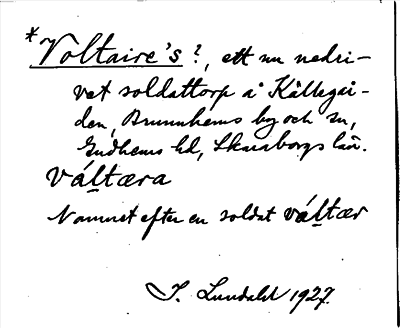 *Voltaire's?, ett nu nedri-
vet soldattorp å Källegår-
den, Brunnhems by och sn,
Gudhems hd, Skaraborgs län.
váltæra
Namnet efter en soldat váltær
J. Lundahl 1927.